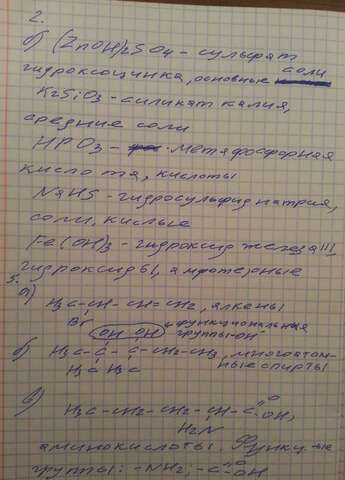 2.
б) (ZnOH)2SO4 - сульфат
гидроксоцинка, основные соли
K2SiO3 - силикат калия,
средние соли
HPO3 - метафосфорная
кислота, кислоты
NaHS - гидросульфид натрия,
соли, кислые
Fe(OH)3 - гидроксид железа III,
гидроксиды, амфотерные
5.
а)
H3C-CH-CH=CH2, алкены
Br
функциональная
OH OH группы-OH
б) H3C-C-C-CH2-CH3, многоатом-
H3C H3C ные спирты
в)
H3C-CH2-CH2-CH-C=O OH,
H2N
аминокислоты. Функц-ные
группы: -NH2; -C=O OH